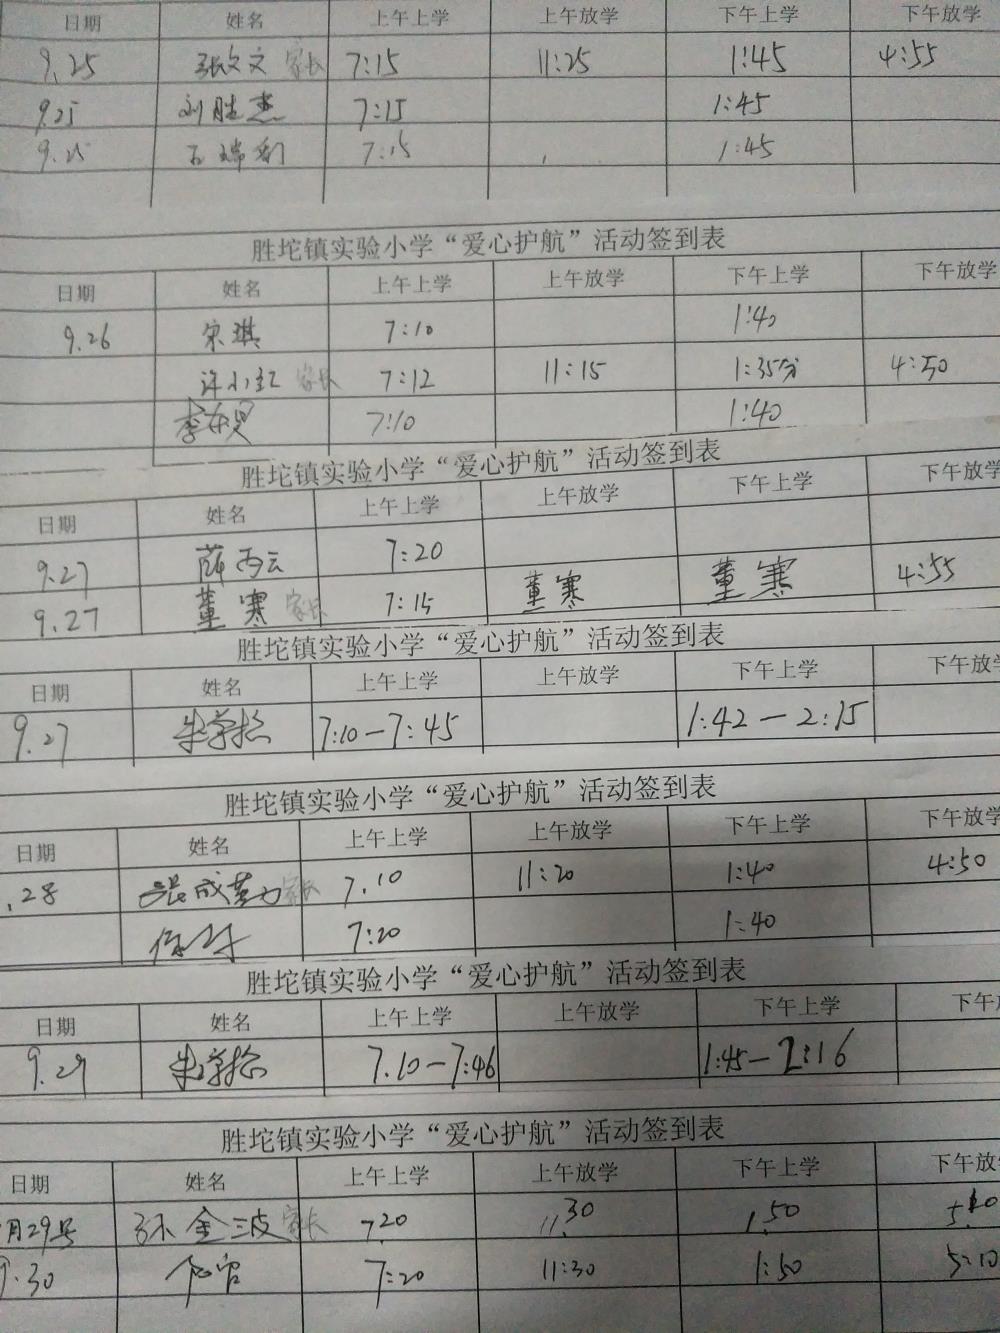 日期 姓名 上午上学 上午放学 下午上学 下午放学
9.25 张文文 家长 7:15 11:25 1:45 4:55
9.25 刘胜杰 7:15 1:45
9.25 7:15 1:45
胜坨镇实验小学“爱心护航”活动签到表
日期 姓名 上午上学 上午放学 下午上学 下午放学
9.26 宋琪 7:10 1:40
许小红 家长 7:12 11:15 1:35分 4:50
李 7:10 1:40
胜坨镇实验小学“爱心护航”活动签到表
日期 姓名 上午上学 上午放学 下午上学 下午放学
9.27 薛丙云 7:20
9.27 董寒 家长 7:15 董寒 董寒 4:55
胜坨镇实验小学“爱心护航”活动签到表
日期 姓名 上午上学 上午放学 下午上学 下午放学
9.27 朱 7:10-7:45 1:42-2:15
胜坨镇实验小学“爱心护航”活动签到表
日期 姓名 上午上学 上午放学 下午上学 下午放学
.28 成 家长 7.10 11:20 1:40 4:50
7:20 1:40
胜坨镇实验小学“爱心护航”活动签到表
日期 姓名 上午上学 上午放学 下午上学 下午
9.29 朱 7.10-7:46 1:45-2:16
胜坨镇实验小学“爱心护航”活动签到表
日期 姓名 上午上学 上午放学 下午上学 下午放
月29号 孙金波 家长 7.20 11.30 1.50
9.30 7:20 11:30 1:50 5:10